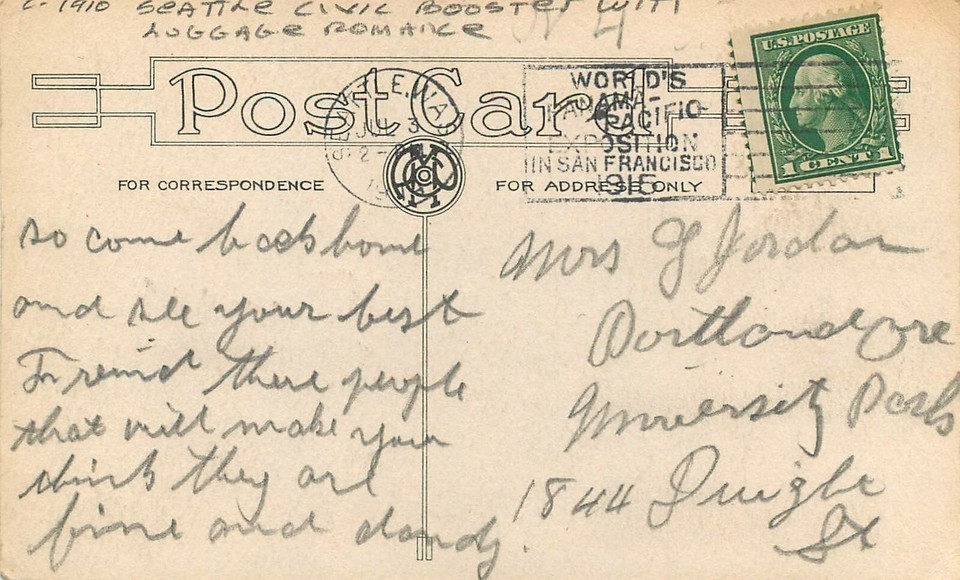 c-1910 SEATTLE CIVIC BOOSTER WITH
LUGGAGE ROMANCE
Post Card
SEATTLE, WA
JUL 3
WORLD'S
PANAMA-
PACIFIC
EXPOSITION
IN SAN FRANCISCO
1915
U.S. POSTAGE
1 CENT 1
FOR CORRESPONDENCE
FOR ADDRESS ONLY
so come back home
and see your best
Freind there people
that will make you
think they are
fine and dandy.
Mrs G Jordan
Portland Ore
University Park
1844
St